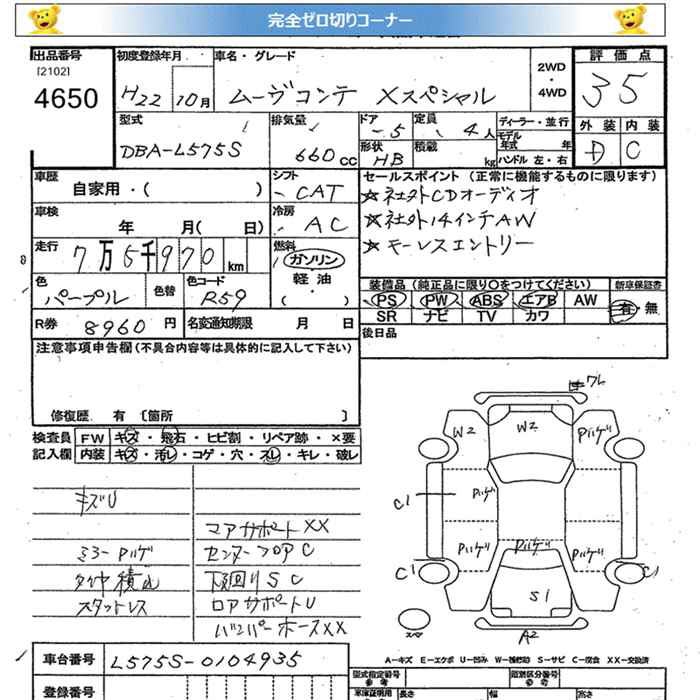 完全ゼロ切りコーナー
出品番号
[2102]
4650
初度登録年月
H22 10月
車名・グレード
ムーヴコンテ Xスペシャル
2WD
・
4WD
評価点
35
外装 内装
D C
型式
DBA-L575S
排気量
660cc
ドア
5
定員
4人
ディーラー・並行
モデル
年式 年
形状
HB
積載
kg
ハンドル 左・右
車歴
自家用・( )
シフト
CAT
セールスポイント (正常に機能するものに限ります)
☆社外CDオーディオ
☆社外14インチAW
☆キーレスエントリー
車検
年 月( 日)
冷房
AC
走行
7万5千970km
燃料
ガソリン
軽油
( )
色
パープル
色替
色コード
R59
装備品 (純正品に限り○をつけてください)
PS PW ABS エアB AW
SR ナビ TV カワ
新車保証書
有・無
R券 8960円
名変通知期限 月 日
後日品
注意事項申告欄 (不具合内容等は具体的に記入して下さい)
修復歴 有 [箇所 ]
検査員
記入欄
FW キズ・飛石・ヒビ割・リペア跡・×要
内装 キズ・汚レ・コゲ・穴・スレ・キレ・破レ
キズU
マアサポートXX
ミラーPハゲ
センターフロアC
タイヤ積込
下廻りSC
スタットレス
ロアサポートU
バンパーホースXX
W2
W2
Pハゲ
C1
Pハゲ
Pハゲ
Pハゲ
Pハゲ
C1
C1
S1
スペア
A2
A-キズ E-エクボ U-凹み W-補修跡 S-サビ C-腐食 XX-交換済
車台番号
L575S-0104935
登録番号
型式指定番号
参考
類別区分番号
参考
車庫証明用
長さ
幅
高さ